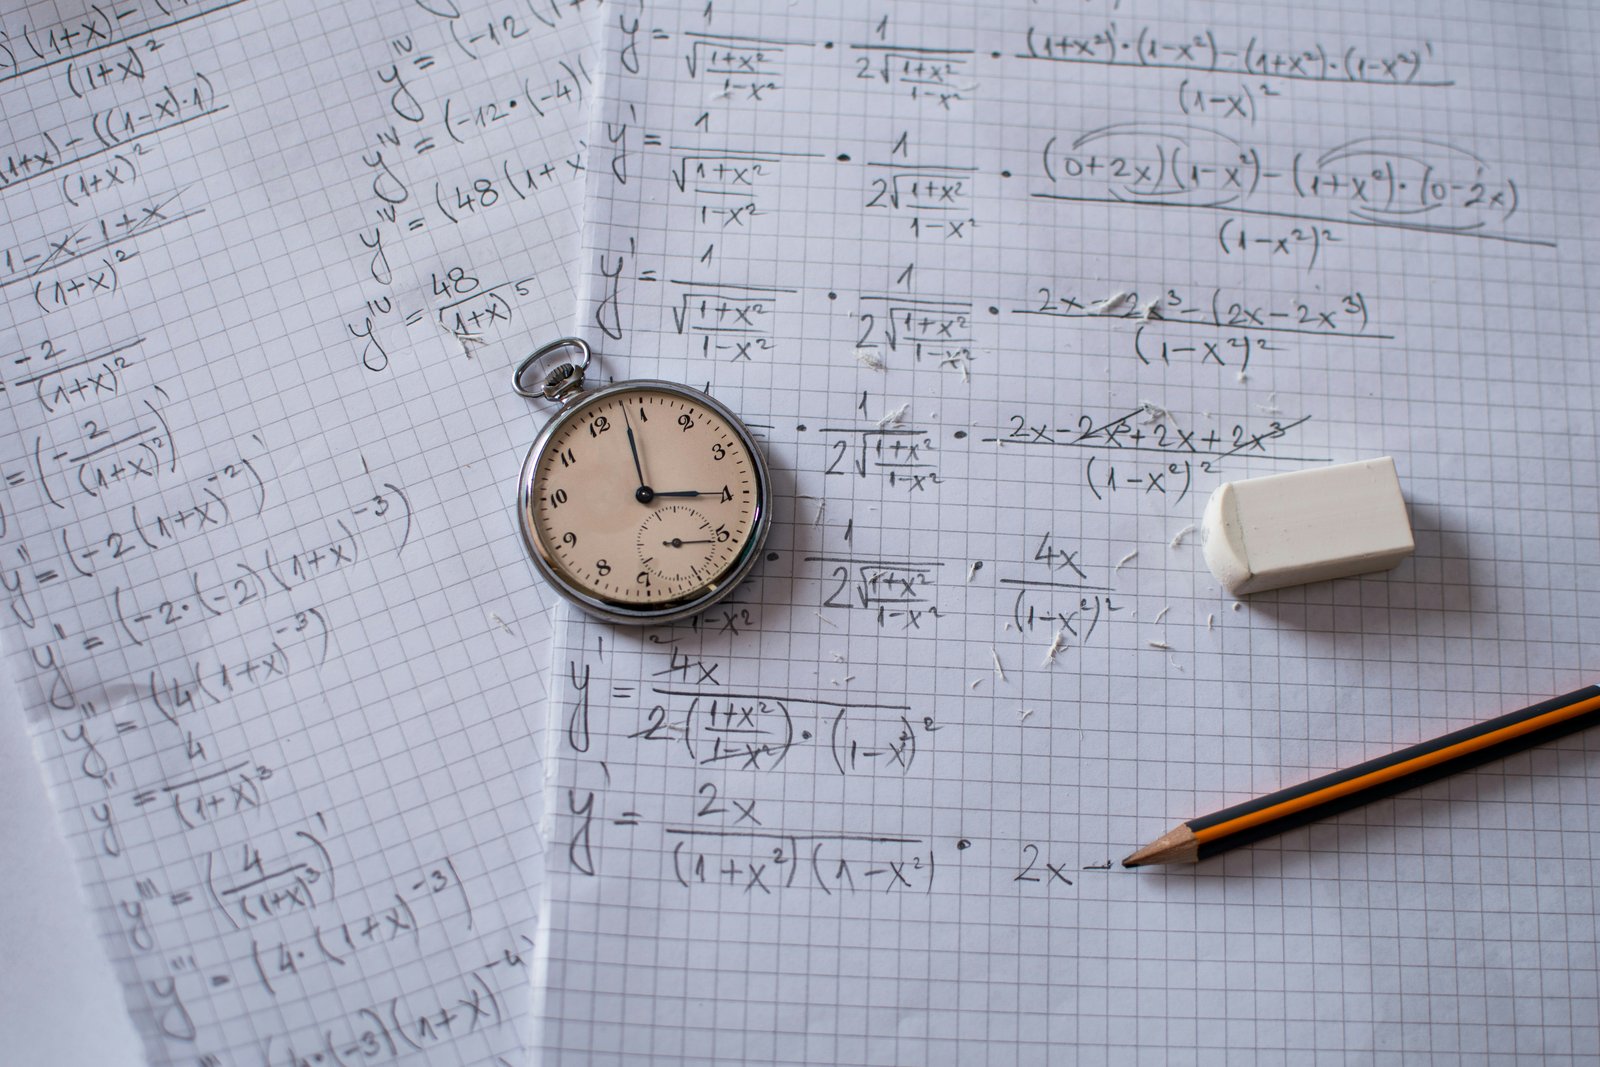 (1+x)-
(1+x)²
1+x)-((1-x)·1)
(1+x)²
1-x-1+x
(1+x)²
-2
(1+x)²
= (-2/(1+x)²)'
y'' = (-2(1+x)⁻²)'
y'' = (-2·(-2)(1+x)⁻³)
y'' = (4(1+x)⁻³)
y'' = 4/(1+x)³
y''' = (4/(1+x)³)'
y''' = (4·(1+x)⁻³)
·(-3)(1+x)⁻⁴
y'ᵛ = (-12(1+
y'ᵛ = (-12·(-4)(
y'ᵛ = (48(1+x
y'ᵛ = 48/(1+x)⁵
y' = 1/√((1+x²)/(1-x²)) · 1/(2√((1+x²)/(1-x²))) · ((1+x²)'·(1-x²)-(1+x²)·(1-x²)')/(1-x)²
y' = 1/√((1+x²)/(1-x²)) · 1/(2√((1+x²)/(1-x²))) · ((0+2x)(1-x²)-(1+x²)·(0-2x))/(1-x²)²
y' = 1/√((1+x²)/(1-x²)) · 1/(2√((1+x²)/(1-x²))) · (2x-2x³-(2x-2x³))/(1-x²)²
· 1/(2√((1+x²)/(1-x²))) · (2x-2x³+2x+2x³)/(1-x²)²
1-x² · 1/(2√((1+x²)/(1-x²))) · 4x/(1-x²)²
y' = 4x/(2·((1+x²)/(1-x²))·(1-x²)²)
y' = 2x/((1+x²)(1-x²)) · 2x-
12 1 2 3 4 5 7 8 9 10 11